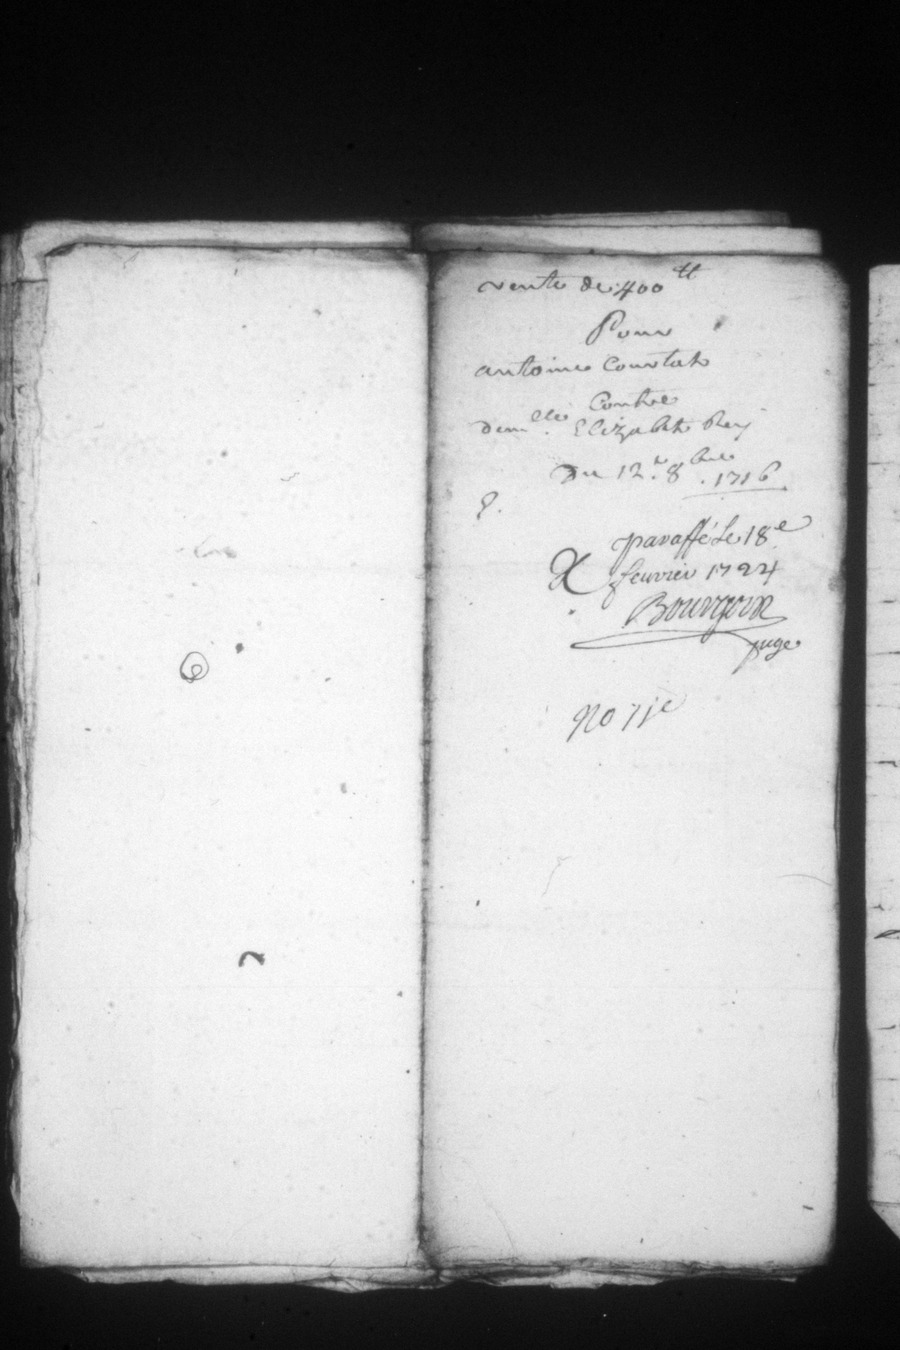 vente de 400 tt
Pour
antoine Courtat
Contre
demlle. Elizabet Rey
Du 12.e 8.bre 1716
paraffé Le 18e
feuvrier 1724
Bourgoin
juge
No 7je